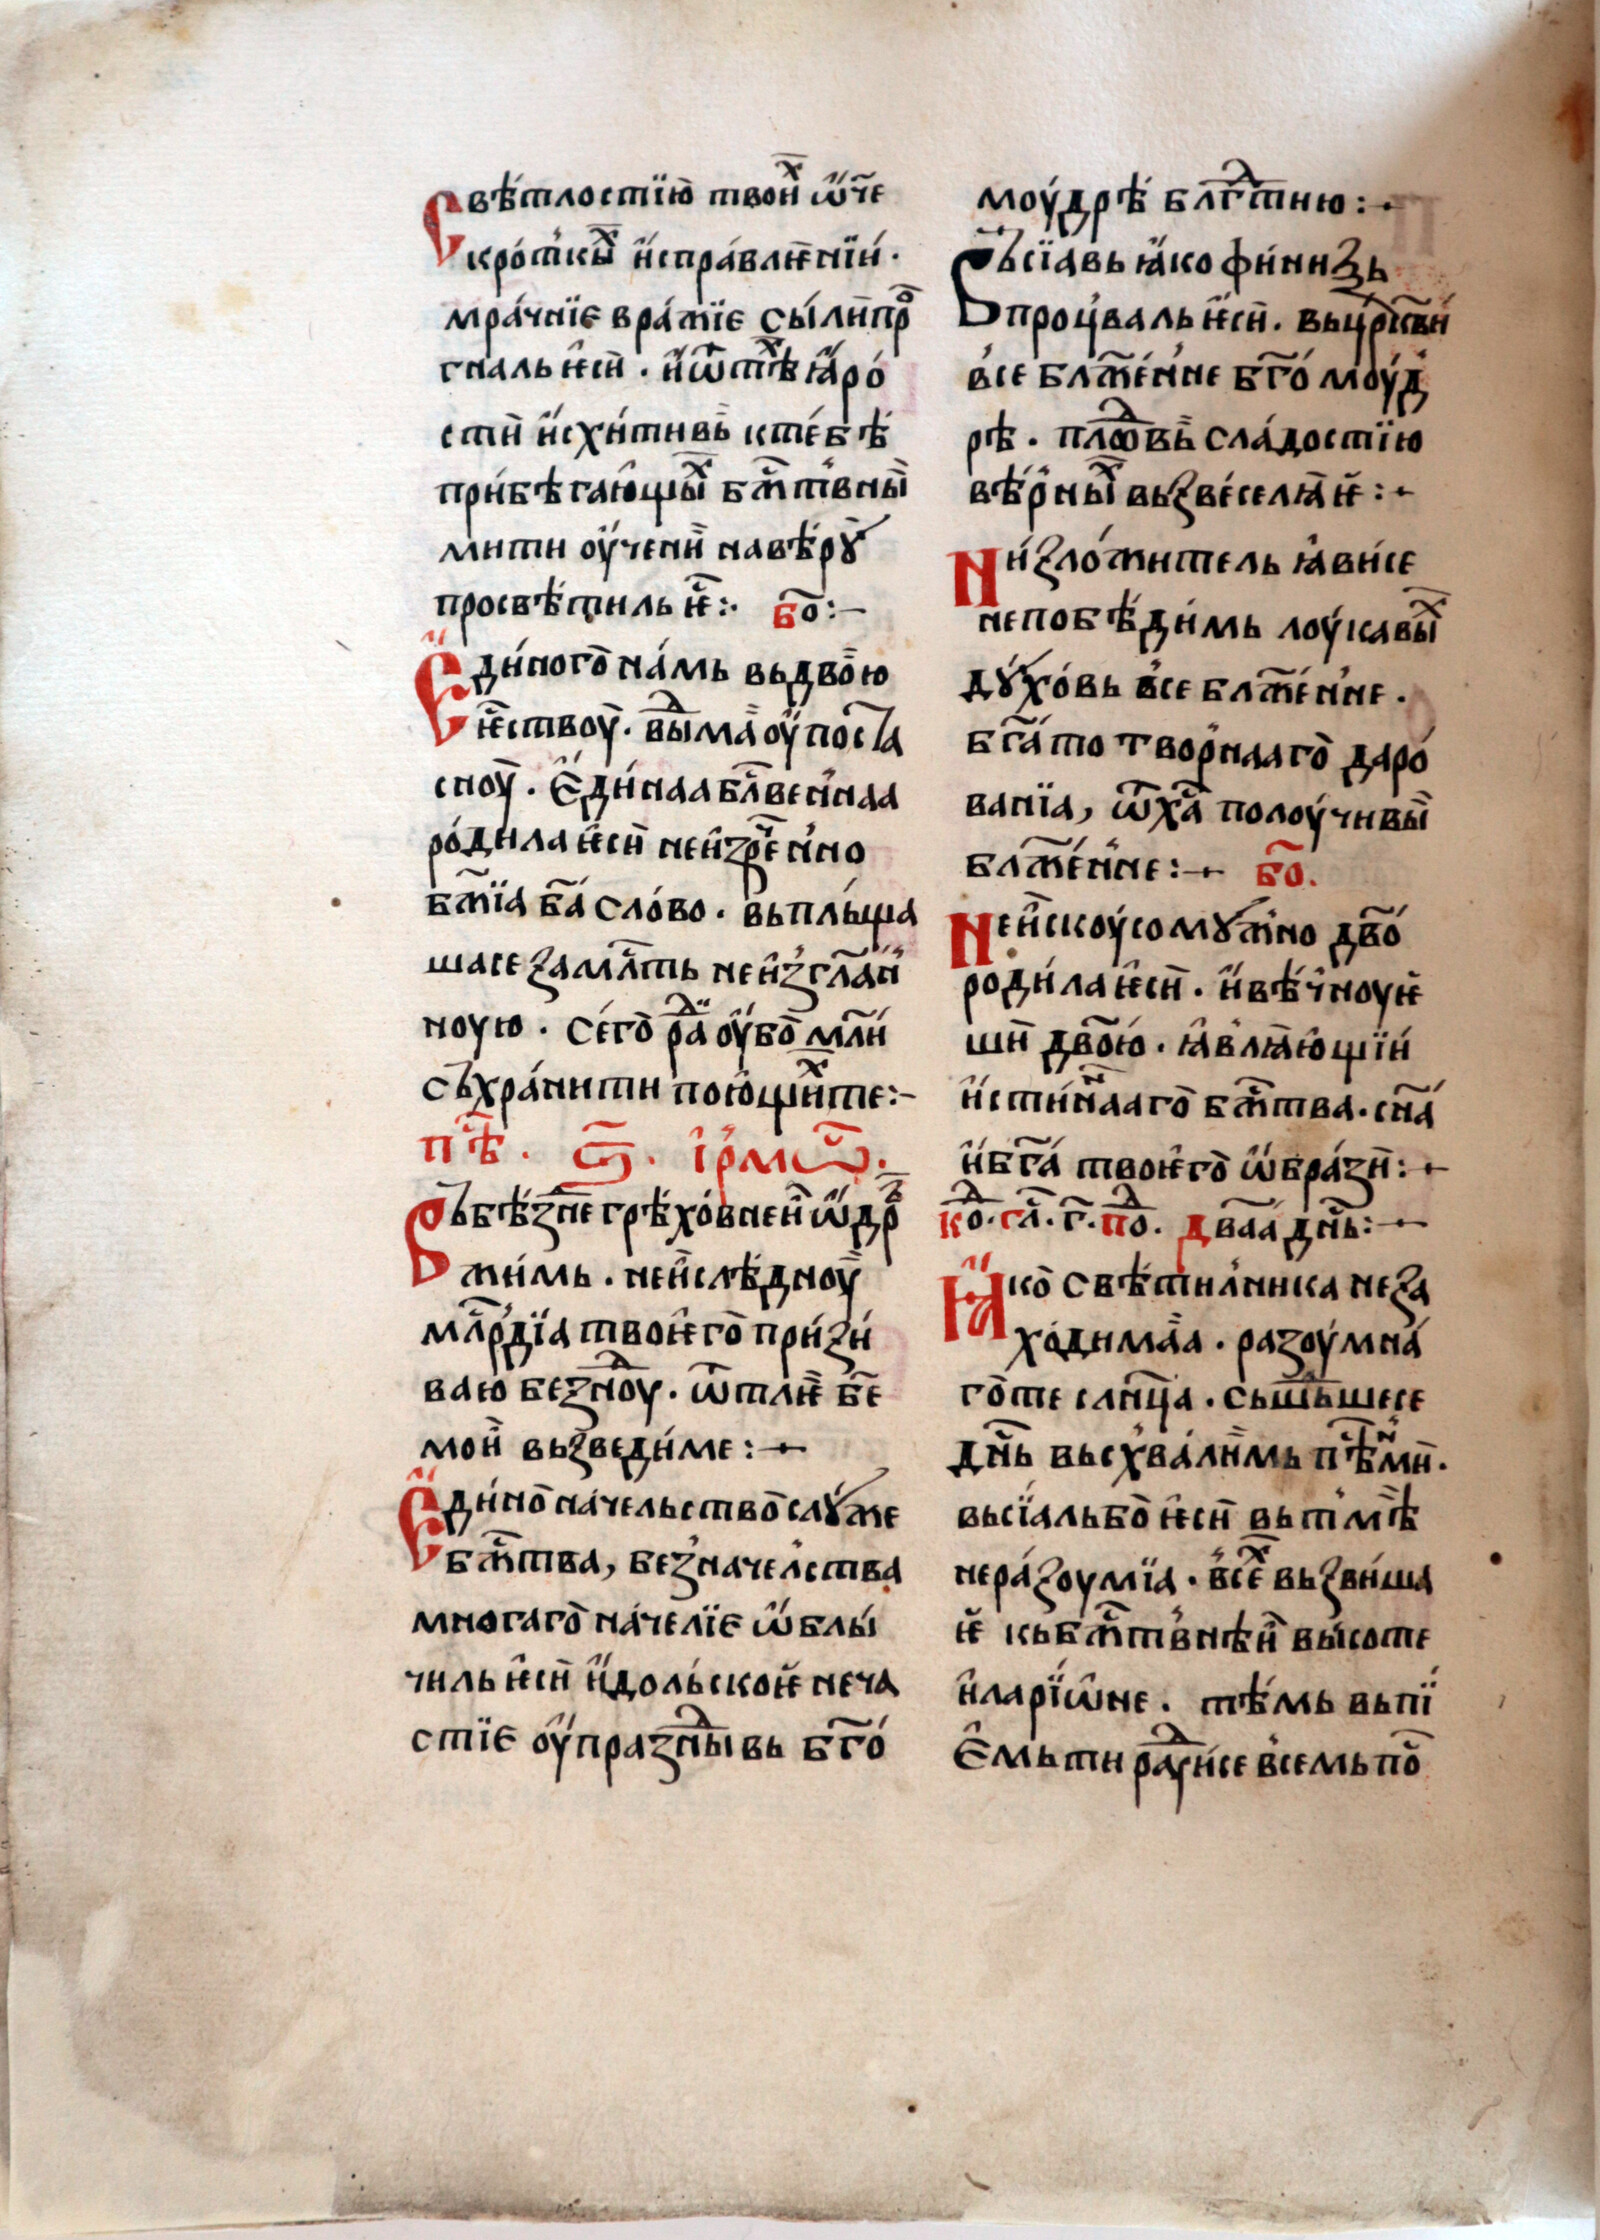 Свѣтлостїю твоиⷯ ѡ҃че
кро́ткыⷯ и҆спра́влѥнїи·
мра́чнїе вра́жїе сы́ли про҇
гналь ѥси· и҆ѿ тѣⷯ ꙗ҆ро́
сти и҆схи́тивь к те́бѣ
при́бѣгаю҆щыⷯ бж҃тв҆ны
мити ѹ҆чени на вѣ́рꙋ
просвѣтиль ѥ҃:· бо҃:–
Е҆ди́ного на́мь вь двою
ѥ҃ствоу· выⷣма ѹ҆поста
сноу· Е҆ди́наа блв҃ен҆наа
ро́дила ѥси неи҆зрⷱ҇ен҆но
бж҃їа ба҃ сло́во· вь плы́ща
шасе за мл҃ть неи҆з҆гл҃ан
ноую· се́го раⷣ ѹ҆бо мл҃и
съхра́нити пою҆щиⷯ те:–
пѣ҃· ѕ҃· і҆рмѡ҃·
Въ бѣ́зⷣне грѣхо́внеи ѡ҆дрⷤ
жи́мь· неи҆слѣ́дноу
млрⷭ҇дїа твоѥ҆го при́зи
ваю безⷣноу· ѿ тлѥ бе҃
мои вьз҆веди́ме:–
Е҆ди́но на́чельство слꙋже
бж҃тва, без҆наче́лства
многаго на́челїе ѡ҆блы
чиль ѥси и҆́дольскоѥ неча
стїе ѹ҆празⷣнывь бг҃о
моу́дрѣ блгⷣтию:–
Въсїавь ꙗ҆ко фи́низь
процваль ѥси· вь црⷭ҇тви
в҆се блж҃ен҆не бг҃о моу́д
рѣ· плоⷣвь сла́достїю
вѣ́р҆ныⷯ вьз҆ве́селꙗѥ:–
Ни́зложитель ꙗ҆висе
непобѣди́мь лоу́кавыⷯ
дꙋ́хо́вь в҆се блж҃ен҆не·
бг҃а́то твор҆нааго даро́
ванїа, ѿ ха҃ полоу́чивы
блж҃ен҆не:– бо҃·
Неи҆скоусомꙋж҆но дв҃о
роди́ла ѥси· и҆ вѣ́ч҆ноуѥ
ши дв҃ою· ꙗ҆в҆лꙗю҆щїи
и҆сти́нⷩааго бж҃тва· сн҃а
и҆ бг҃а твоѥ҆го ѡ҆бра́зи:–
коⷣ· гл҃· г҃· поⷣ· Дв҃аа дн҃ь:–
Ꙗ҆ко свѣтил҆ника неза
хо́димаа· разоу́мна
го те слн҃ца· сьшⷣьшесе
дн҃ь вьсх҆ва́лимь пѣⷭ҇нⷨми·
вьсїаль бо ѥси вь тмѣ
нера́зоумїа· в҆сеⷯ вьзви́ша
ѥ кь бж҃тв҆нѣи вы́соте
и҆ларїѡ҆не· тѣ́мь вьпї
е҆мь ти раⷣуи́се в҆семь поⷭ҇